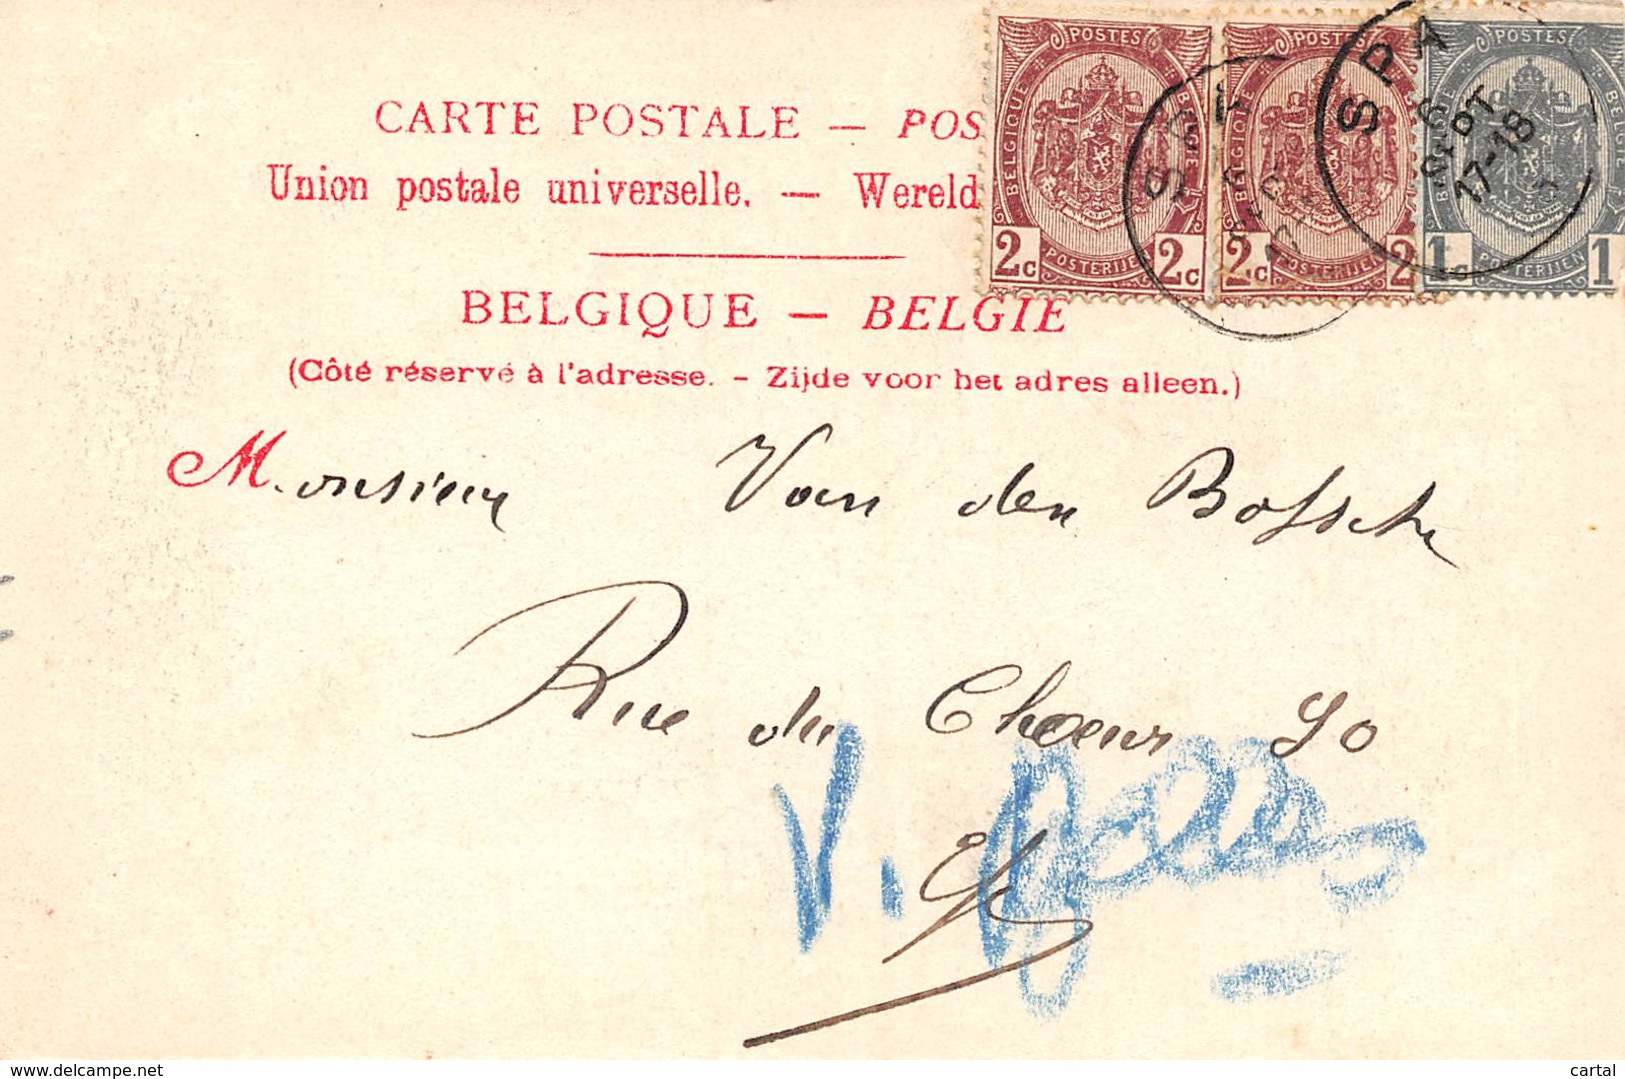 CARTE POSTALE — POS
Union postale universelle. — Wereld
BELGIQUE — BELGIE
(Côté réservé à l'adresse. – Zijde voor het adres alleen.)
Monsieur Van den Bossche
Rue du Chœur 90
V.
POSTES
BELGIQUE
BELGIE
2c 2c
POSTERIJEN
POSTES
BELGIQUE
2c 2
POSTERIJEN
POSTES
BELGIQUE
BELGIE
1c 1
POSTERIJEN
SPA
6
SEPT
17-18
SPA
6
www.delcampe.net
cartal